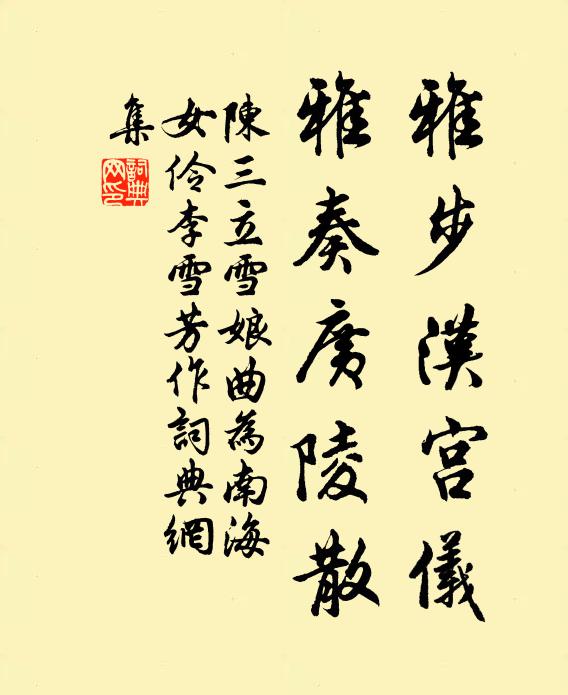 雅步漢宫儀
雅奏廣陵散
陳三立雪娘曲為南海
女伶李雪芳作詞典網
集
詞典網印